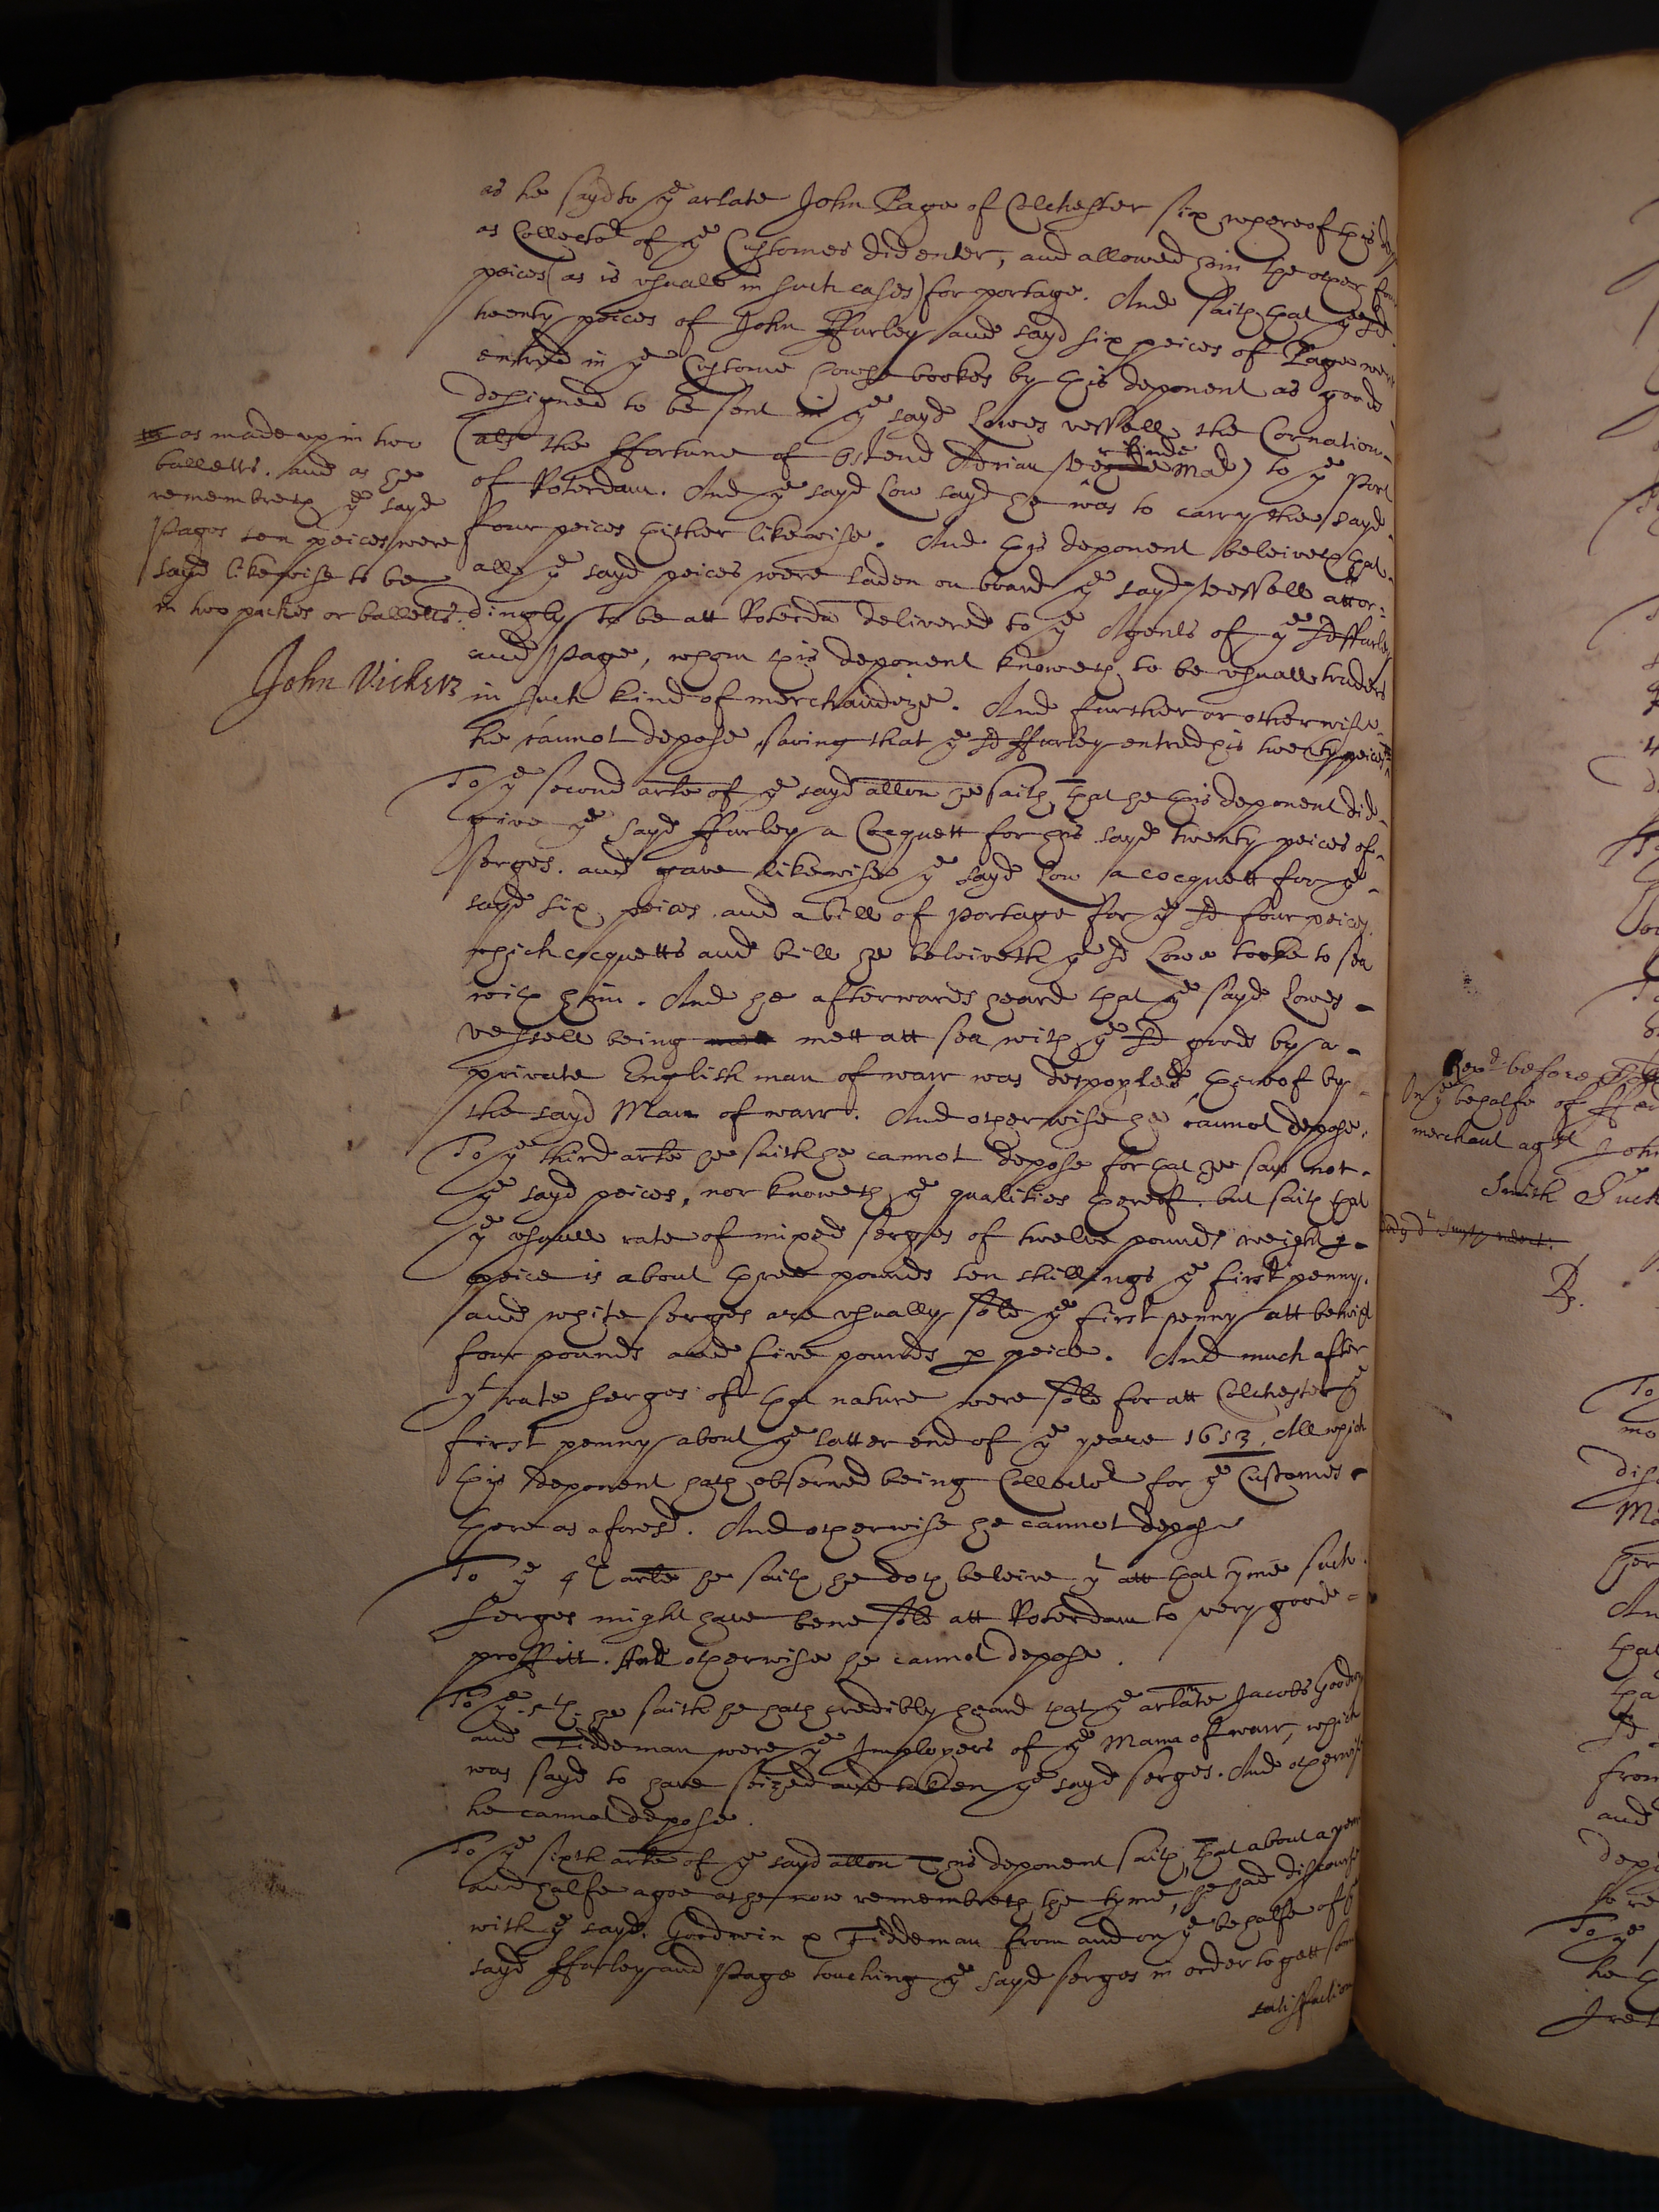 as he sayd to ye arlate John Page of Colchester six whereof this
as Collector of ye Customes did enter, and allowed him the other four
peices (as is usuall in such cases) for portage. And saith that ye sd
twenty peices of John Ffurley and sayd six peices of Page were
entred in ye Custome howse bookes by this deponent as goods
designed to be sent in ye sayd Lowes vessell the Cornation
(als the Ffortune of Ostend Adrian Master) to ye Port
of Roterdam. And ye sayd Low sayd he was to carry the sayd
four peices thither likewise. And this deponent beleiveth that
all ye sayd peices were laden on board ye sayd vessell accor:
dingly to be att Roterda delivered to ye Agents of ye sd Ffurley
and Page, whom this deponent knoweth to be usuall traders
in such kind of merchandize. And further or otherwise
he cannot depose, saving that ye sd Ffurley entred his twenty peices
as made up in two
balletts. and as he
remembreth ye sayd
Pages ten peices were
sayd likewise to be
in two packes or balletts.
John Vickers
To ye second arle of ye sayd allon he saith that he this deponent did
give ye sayd Ffurley a Cocquett for his sayd twenty peices of
serges. and gave likewise ye sayd Low a cocquett for ye
sayd six peices and a bill of portage for ye sd four peices
which cocquetts and bill he beleiveth ye sd Lowe tooke to sea
with him. And he afterwards heard that ye sayd Lowes
vessell being mett att sea with ye sd goods by a
private English man of warr was despoyled thereof by
the sayd Man of warr. And otherwise he cannot depose.
To ye third arle he saith he cannot depose for that he saw not
ye sayd peices, nor knoweth ye qualities thereof. but saith that
ye usuall rate of mixed serges of twelve pounds weight ye
peice is about three pounds ten shillings ye first penny.
and white serges are usually sold ye first penny att betwixt
four pounds and five pounds p peice. And much after
yt rate serges of that nature were sold for att Colchester ye
first penny about ye latter end of ye yeare 1653. All which
this deponent hath observed being Collector for ye Customes
there as aforesd. And otherwise he cannot depose
To ye 4th arle he saith he doth beleive yt att that tyme such
serges might have bene sold att Roterdam to very good
proffitt. And otherwise he cannot depose.
To ye 5th he saith he hath credibly heard that ye arlate Jacobs Goodwin
and Tiddeman were ye Imployers of ye Mann of warr, which
was sayd to have seized and taken ye sayd serges. And otherwise
he cannot depose.
To ye sixth arle of ye sayd allon This deponent saith, that about a yeare
and halfe agoe as he now remembreth the tyme, he had discourse
with ye sayd Goodwin & Tiddeman from and on ye behalfe of ye
sayd Ffurley and Page touching ye sayd serges in order to gett some
satisfaction
before
In ye behalfe of
merchant agst John
Smith